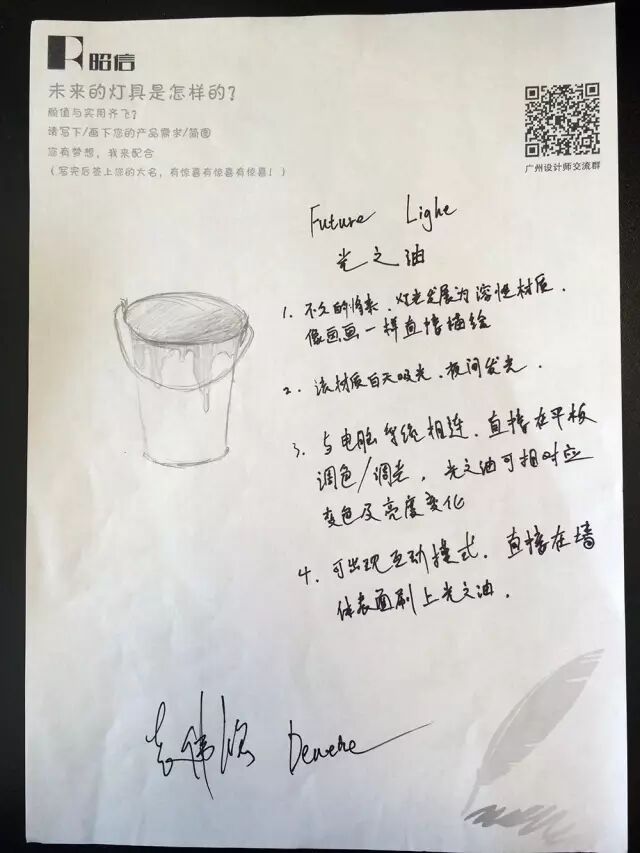 昭信
未来的灯具是怎样的？
颜值与实用齐飞？
请写下/画下您的产品需求/简图
您有梦想，我来配合
（写完后签上您的大名，有惊喜有惊喜有惊喜！）
广州设计师交流群
Future Lighe
光之油
1. 不久的将来，灯光发展为溶性材质，
像画画一样直接描绘
2. 该材质白天吸光，夜间发光．
3. 与电脑系统相连，直接在平板
调色/调光，光之油可相对应
变色及亮度变化
4. 可出现互动模式，直接在墙
体表面刷上光之油．